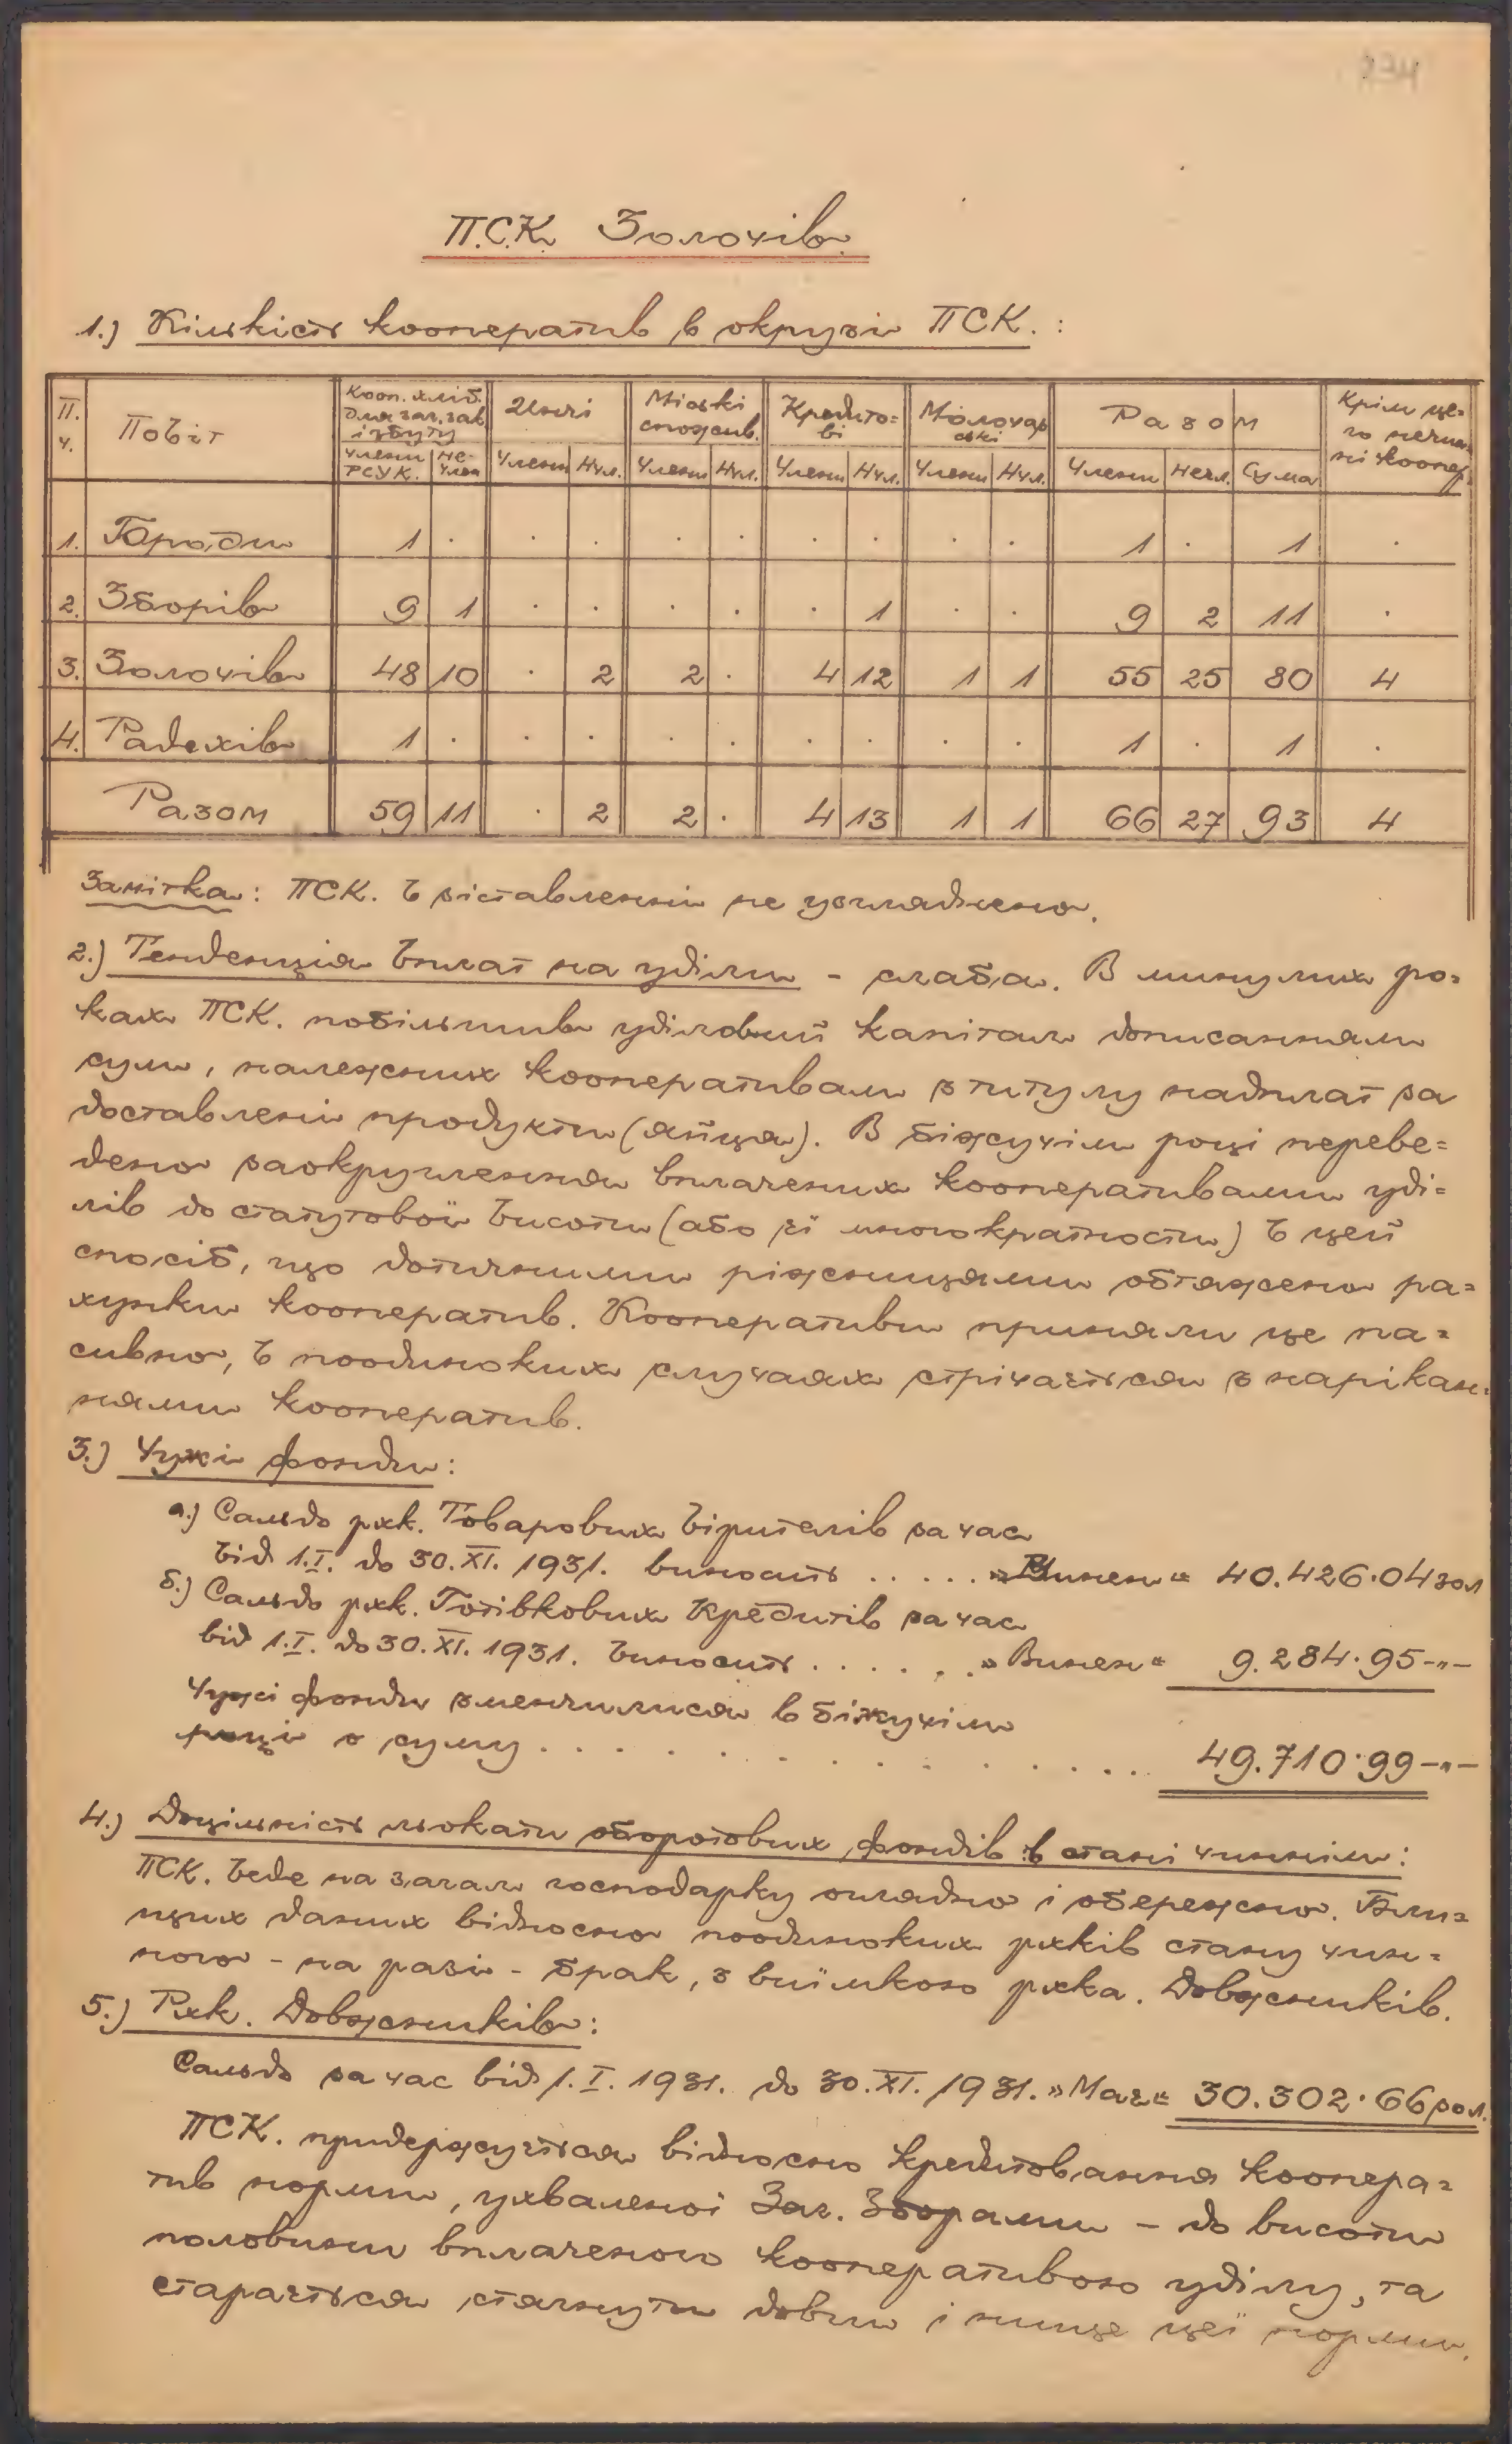 234
П.С.К. Золочів.
1.) Кількість кооператив в окрузі ПСК. :
П. ч. | Повіт | Кооп. хліб. для заг. зак. і збуту | Инчі | Міські спожив. | Кредито=ві | Молочарські | Разом | Крім це=го нечин=ні коопер.
Члени РСУК. | Не-член | Члени | Нчл. | Члени | Нчл. | Члени | Нчл. | Члени | Нчл. | Члени | Нечл. | Сума
1. | Броди | 1 | . | . | . | . | . | . | . | . | . | 1 | . | 1 | .
2. | Зборів | 9 | 1 | . | . | . | . | . | 1 | . | . | 9 | 2 | 11 | .
3. | Золочів | 48 | 10 | . | 2 | 2 | . | 4 | 12 | 1 | 1 | 55 | 25 | 80 | 4
4. | Радехів | 1 | . | . | . | . | . | . | . | . | . | 1 | . | 1 | .
Разом | 59 | 11 | . | 2 | 2 | . | 4 | 13 | 1 | 1 | 66 | 27 | 93 | 4
Замітка: ПСК. в зіставленні не узгляднено.
2.) Тенденція вплат на уділи - слаба. В минулих ро=
ках ПСК. побільшив уділовий капітал дописанням
сум, належних кооперативам з титулу надплат за
доставлені продукти (яйця). В біжучім році переве=
дено заокруглення вплачених кооперативами уді=
лів до статутової висоти (або її многократности) в цей
спосіб, що дотичними ріжницями обтяжено ра=
хунки кооператив. Кооперативи приняли це па=
сивно, в поодиноких случаях стрічається з нарікан=
нями кооператив.
3.) Чужі фонди:
а.) Сальдо рхк. Товарових Вірителів за час
від 1.I. до 30.XI. 1931. виносить . . . . . »Винен« 40.426.04 зол
б.) Сальдо рхк. Готівкових Кредитів за час
від 1.I. до 30.XI. 1931. виносить . . . . . . »Винен« 9.284.95 -"-
Чужі фонди зменчилися в біжучім
році о суму . . . . . . . . . . . . . . . 49.710.99 -"-
4.) Доцільність льокати оборотових фондів в стані чиннім:
ПСК. веде на загал господарку оглядно і обережно. Бли=
щих даних відносно поодиноких рхків стану чин=
ного - на разі - брак, з виїмкою рхка. Довжників.
5.) Рхк. Довжників:
Сальдо за час від 1.I. 1931. до 30.XI. 1931. »Має« 30.302.66 зол.
ПСК. придержується відносно кредитовання коопера=
тив норми, ухваленої Заг. Зборами - до висоти
половини вплаченого кооперативою уділу, та
старається стягнути довги і нище цеї норми.